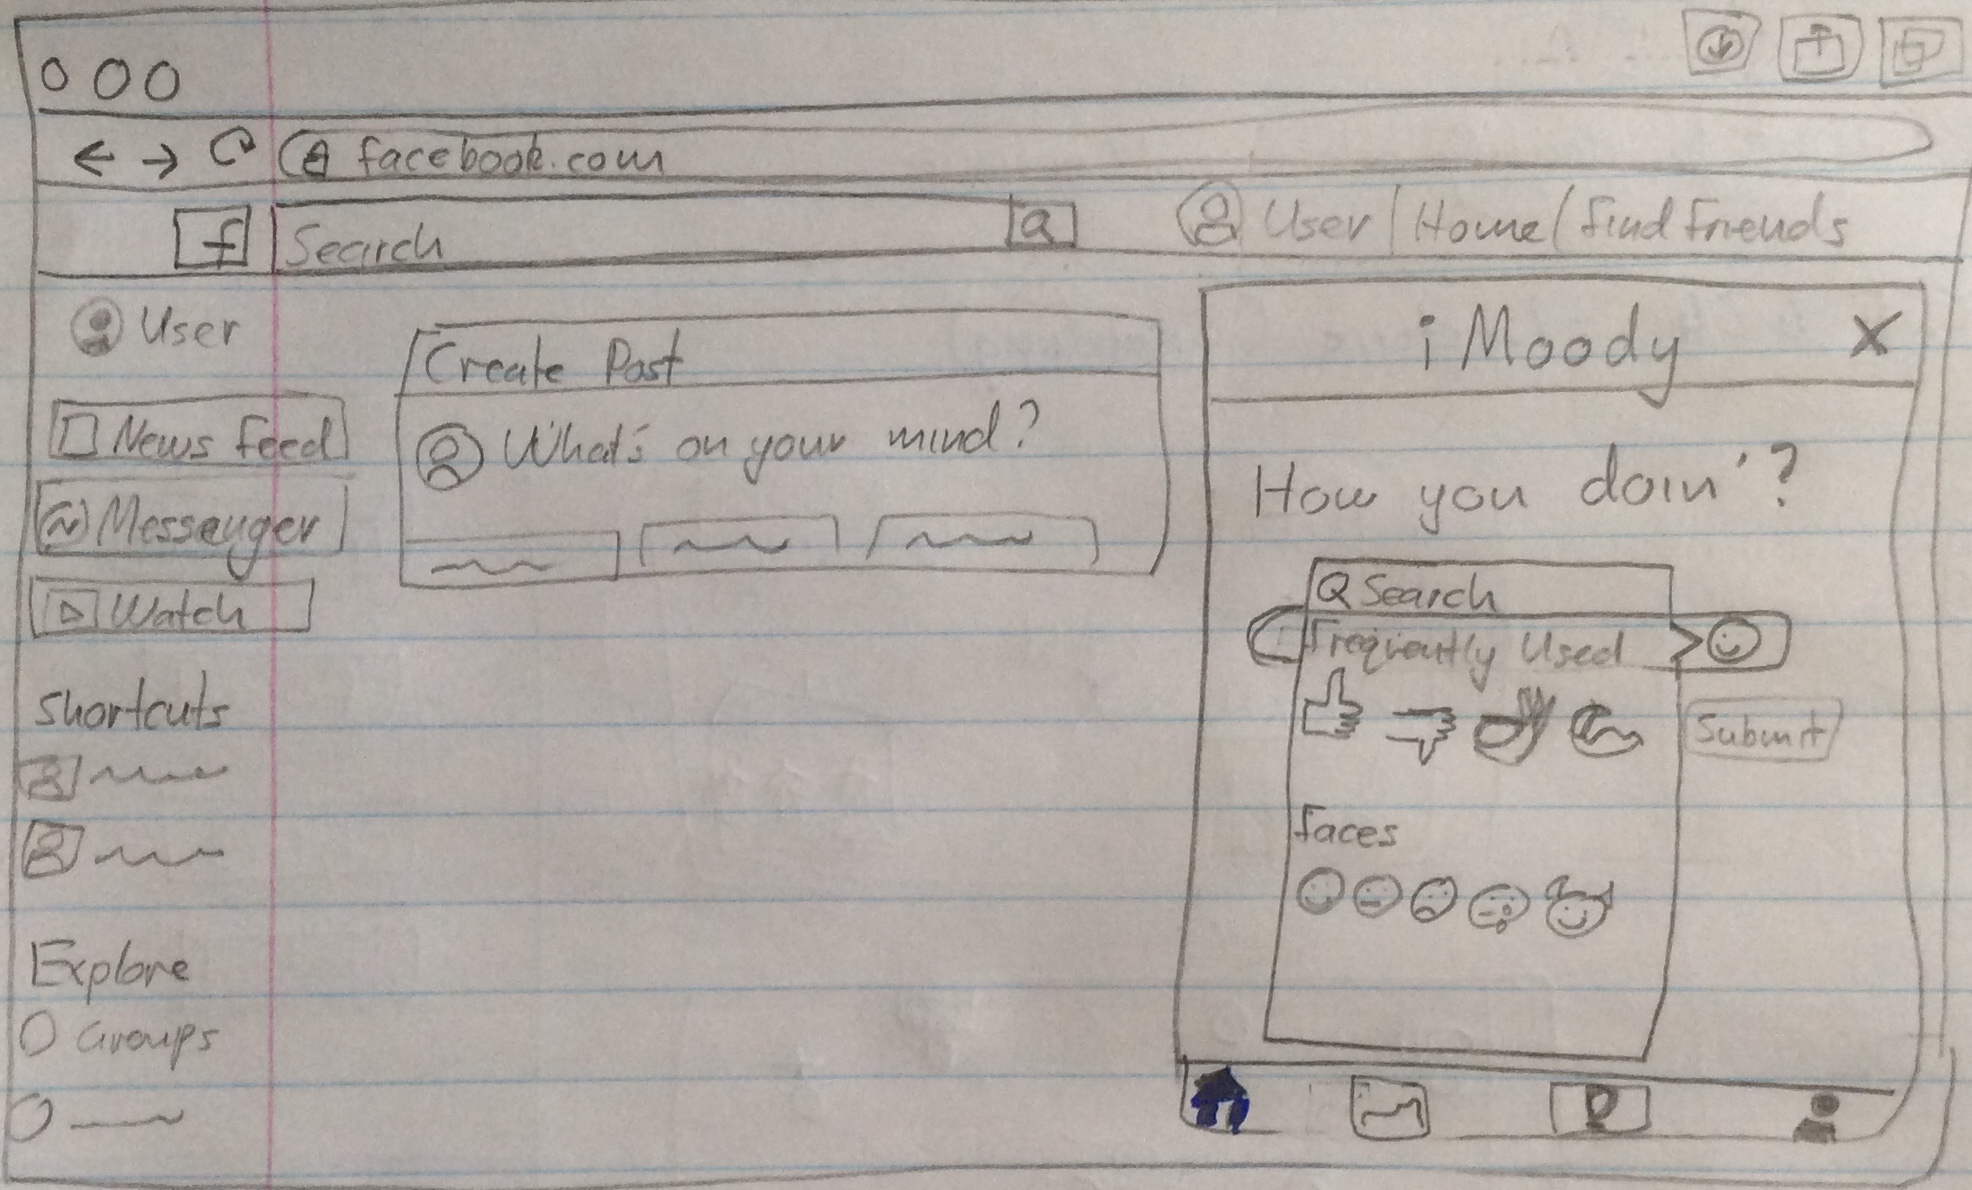 facebook.com
f Search
User | Home | find friends
User
News feed
Messenger
Watch
Shortcuts
Explore
Groups
Create Post
What's on your mind?
iMoody X
How you doin'?
Search
Frequently Used
Submit
faces